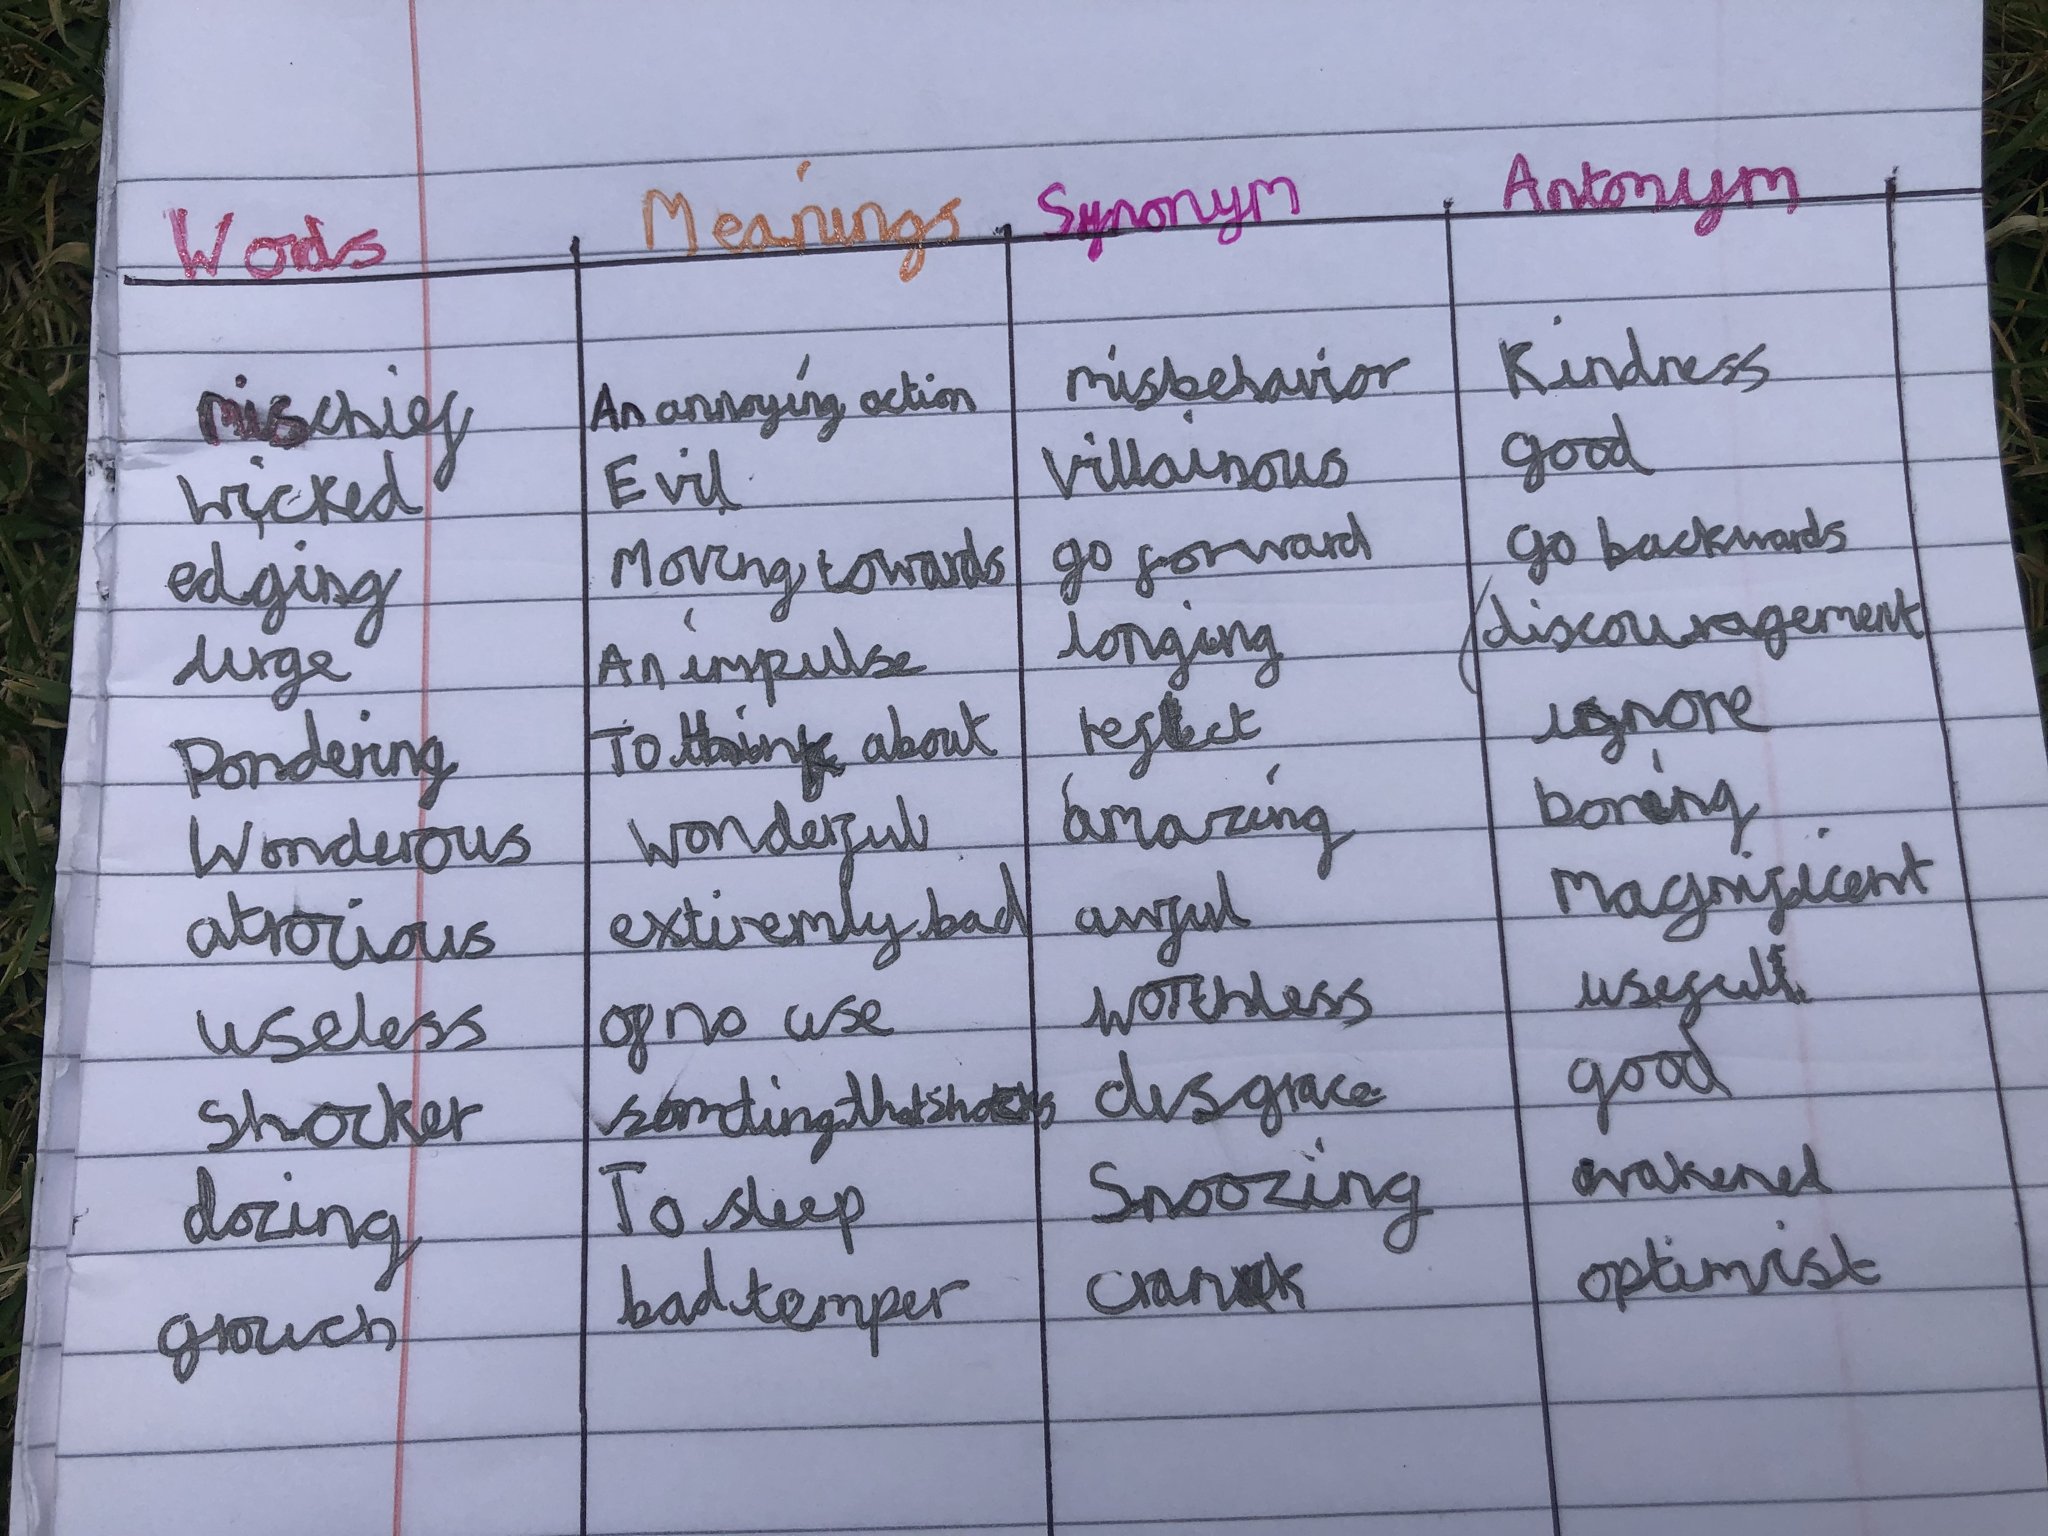 Words Meanings Synonym Antonym
mischief An annoying action misbehavior Kindness
Wicked Evil Villainous good
edging Moving towards go forward go backwards
urge An impulse longing discouragement
Pondering To think about reflect ignore
Wonderous Wonderful amazing boring
atrocious extiremly bad awful Magnificent
useless of no use worthless useful
Shocker somting that shocks disgrace good
dozing To sleep Snoozing awakened
grouch bad temper crank optimist